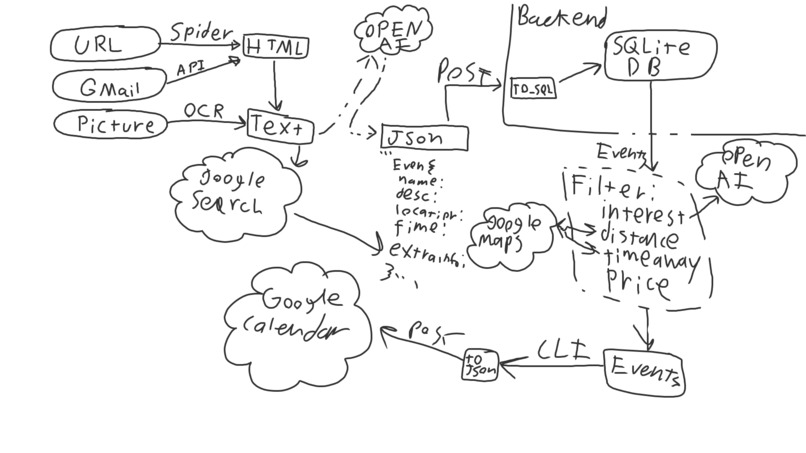 URL
Spider
HTML
GMail
API
Picture
OCR
Text
OPEN
AI
Google
Search
Json
...
Even{
name:
desc:
location:
time:
extrainfo:
}...
POST
Backend
TO_SQL
SQLite
DB
Events
Filter:
interest
distance
timeaway
Price
OPen
AI
Google
maps
Events
CLI
TO
Json
POST
Google
Calendar